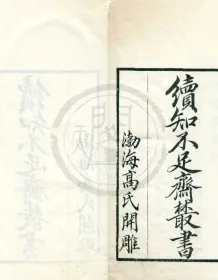 續知不足齋叢書
渤海高氏開雕